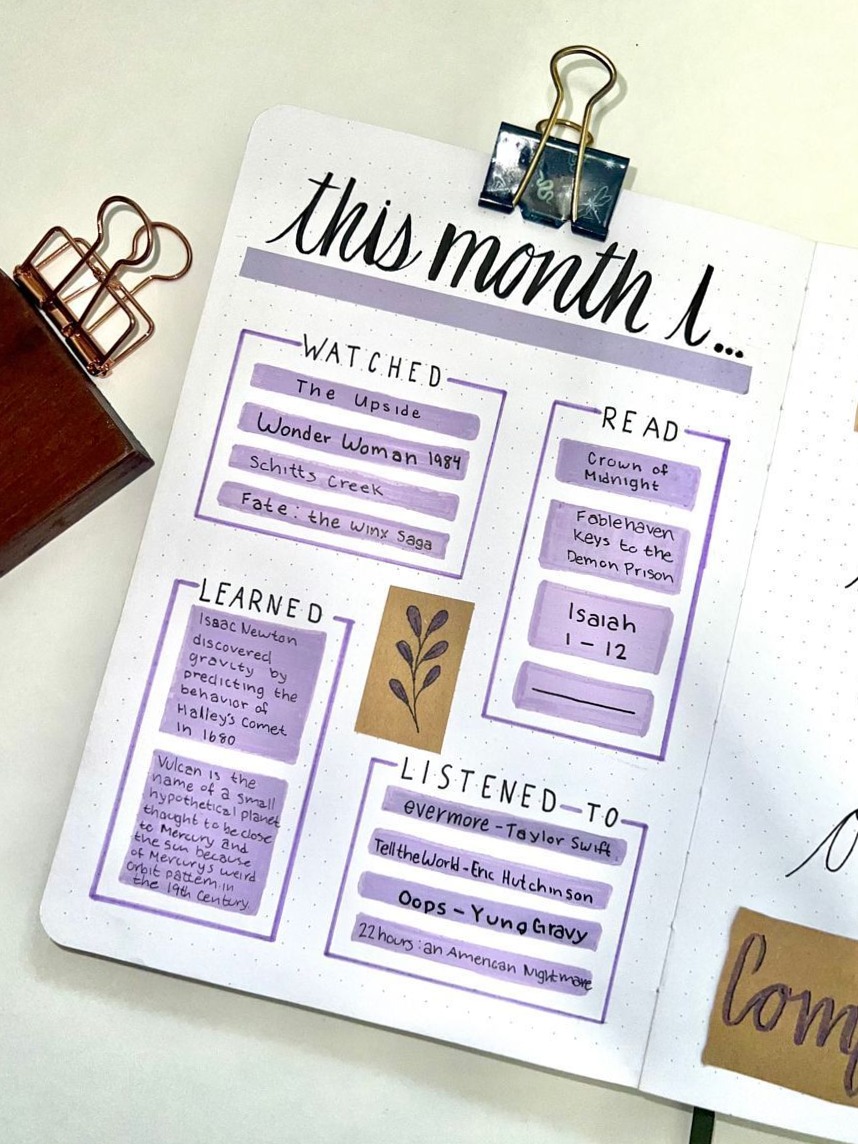 this month I...
WATCHED
The Upside
Wonder Woman 1984
Schitts Creek
Fate: the Winx Saga
READ
Crown of
Midnight
Fablehaven
Keys to the
Demon Prison
Isaiah
1-12
LEARNED
Isaac Newton
discovered
gravity by
predicting the
behavior of
Halley's Comet
in 1680
Vulcan is the
name of a small
hypothetical planet
thought to be close
to Mercury and
the sun because
of Mercurys weird
orbit pattern in
the 19th Century.
LISTENED-TO
evermore-Taylor Swift
Tell the World-Eric Hutchinson
Oops-Yung Gravy
22 hours: an American Nightmare